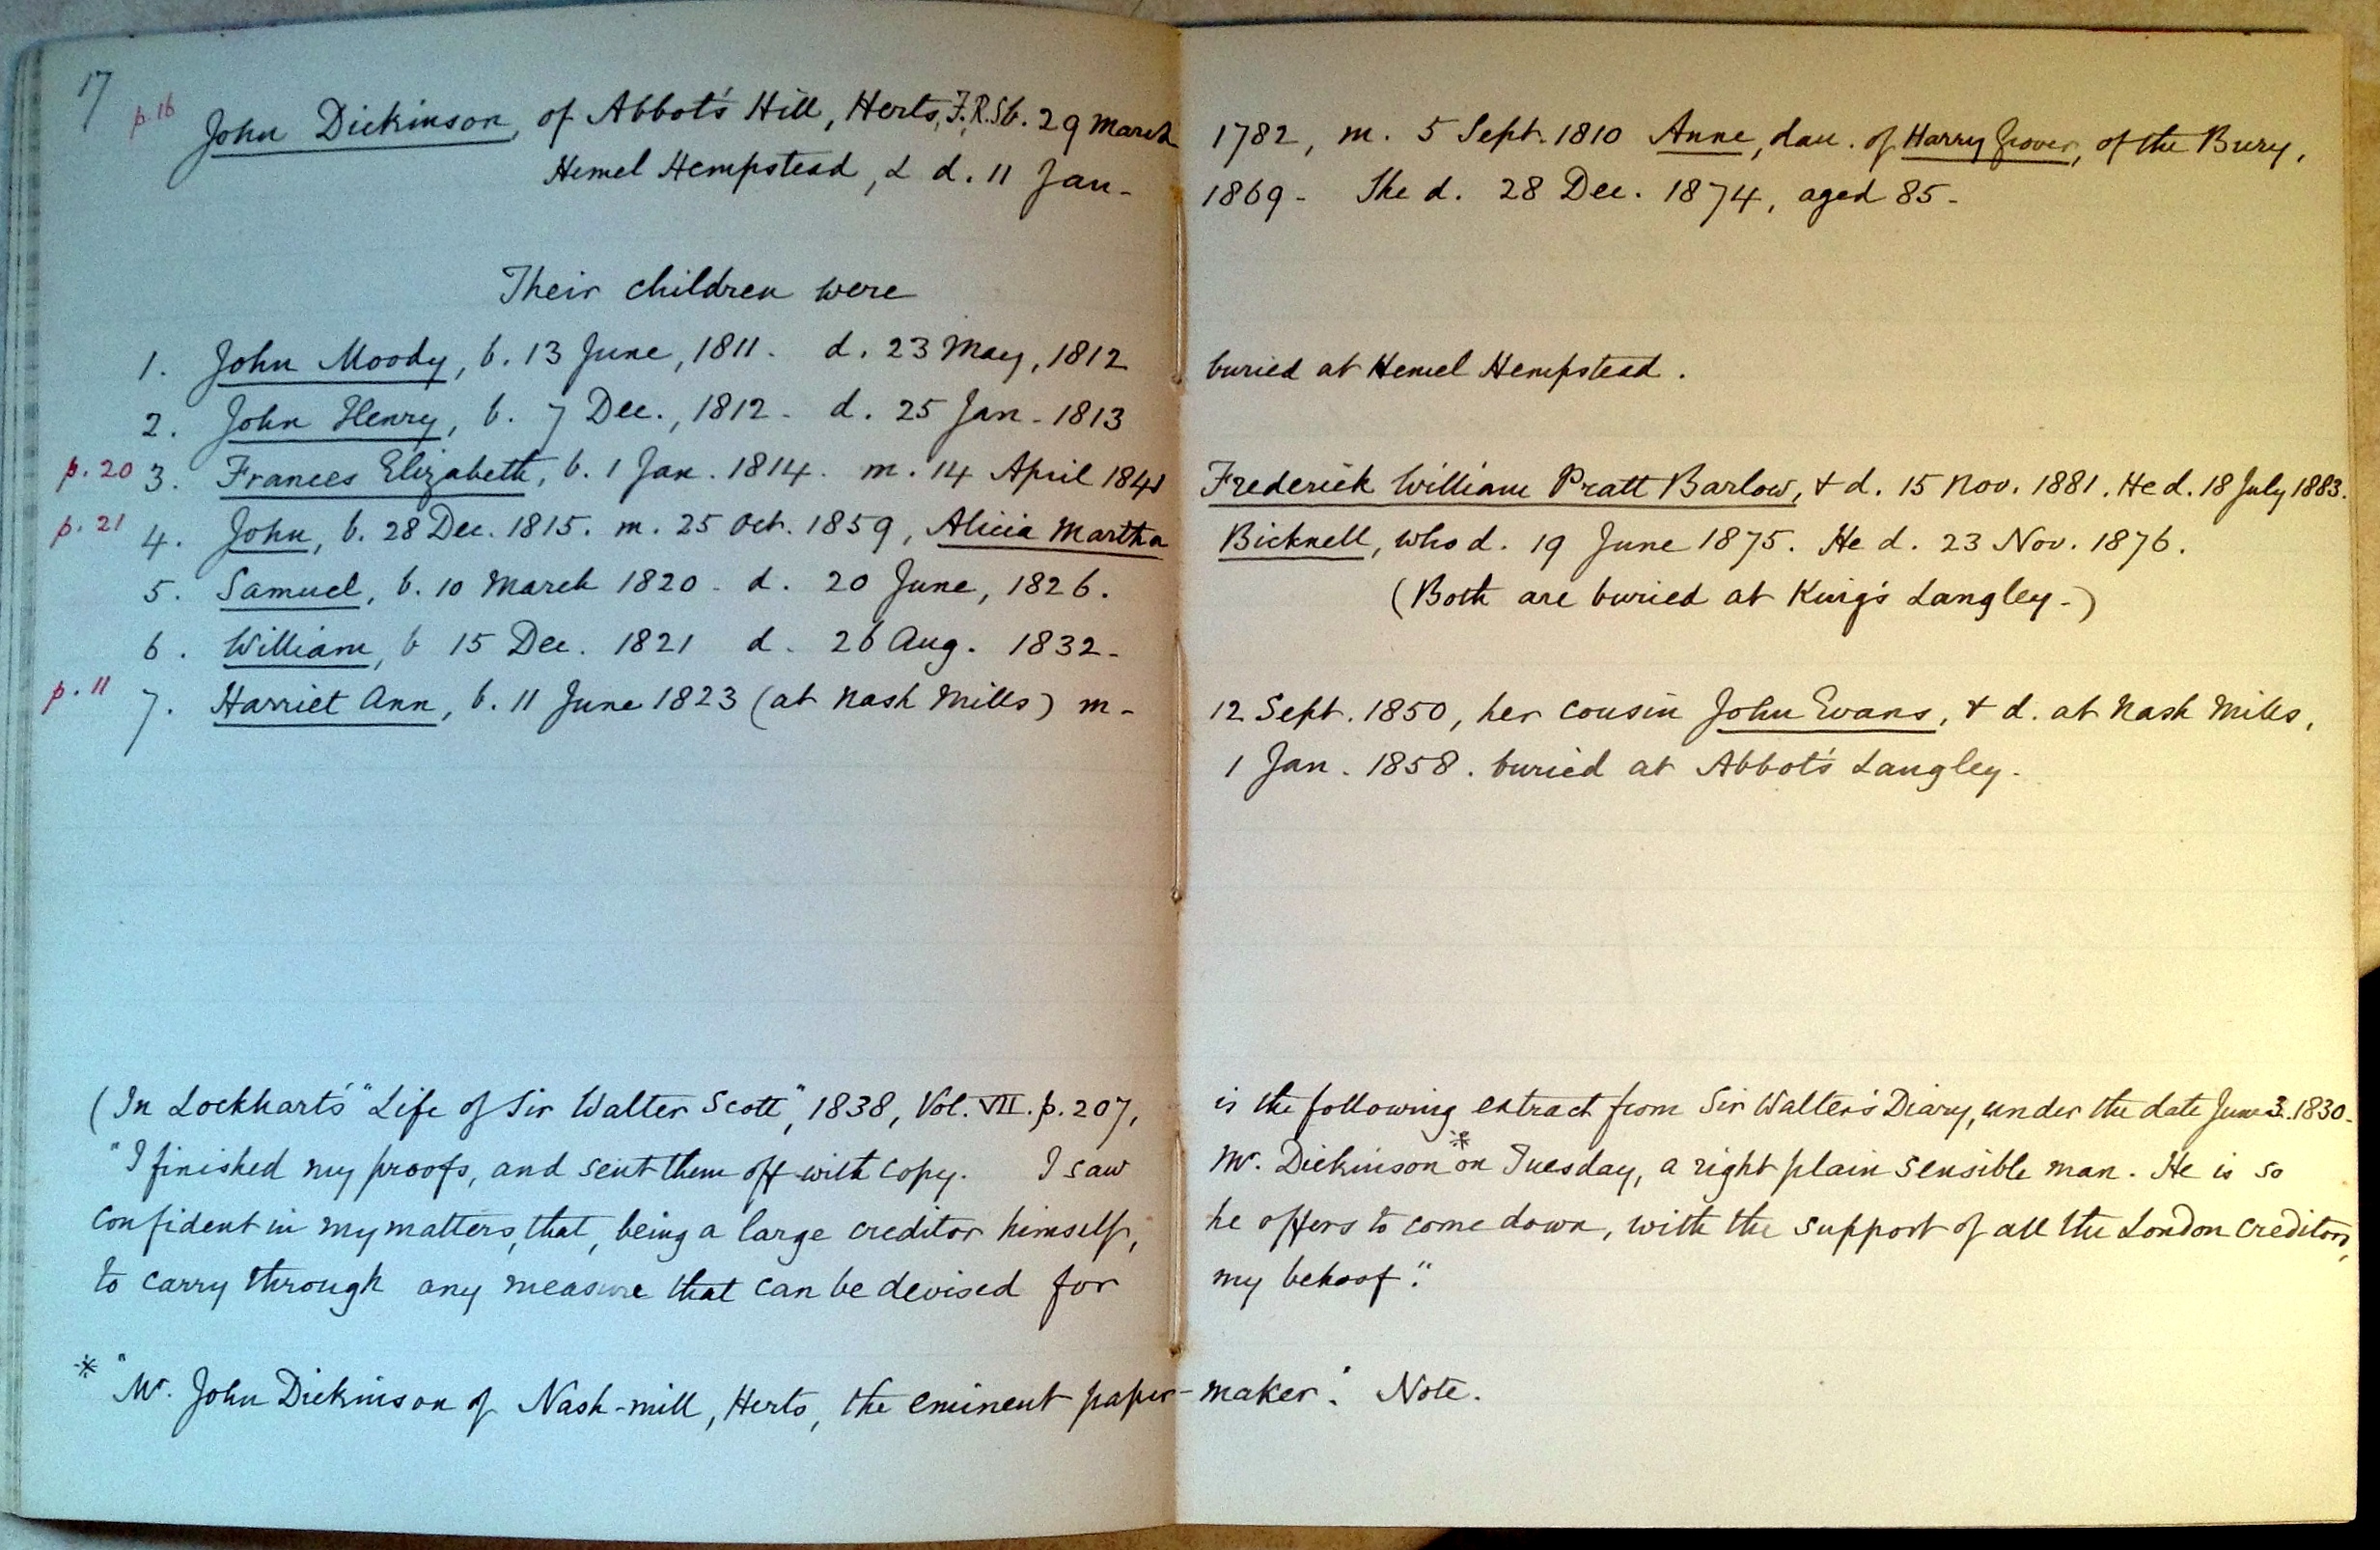 17
p.16 John Dickinson, of Abbot's Hill, Herts, F.R.S b. 29 March 1782, m. 5 Sept. 1810 Anne, dau. of Harry Grover, of the Bury,
Hemel Hempstead, & d. 11 Jan- 1869- She d. 28 Dec. 1874, aged 85-
Their children were
1. John Moody, b. 13 June, 1811. d. 23 May, 1812 buried at Hemel Hempstead.
2. John Henry, b. 7 Dec., 1812- d. 25 Jan- 1813
p.20 3. Frances Elizabeth, b. 1 Jan. 1814. m. 14 April Frederick William Pratt Barlow, & d. 15 Nov. 1881. He d. 18 July 1883.
p.21 4. John, b. 28 Dec. 1815. m. 25 Oct. 1859, Alicia Martha Bicknell, who d. 19 June 1875. He d. 23 Nov. 1876.
(Both are buried at King's Langley-)
5. Samuel, b. 10 March 1820- d. 20 June, 1826.
6. William, b 15 Dec. 1821 d. 26 Aug. 1832-
p.11 7. Harriet Ann, b. 11 June 1823 (at Nash Mills) m- 12 Sept. 1850, her cousin John Evans, & d. at Nash Mills,
1 Jan. 1858. buried at Abbot's Langley.
(In Lockhart's "Life of Sir Walter Scott", 1838, Vol. VII. p. 207, is the following extract from Sir Walter's Diary, under the date June 3. 1830-
"I finished my proofs, and sent them off with copy. I saw Mr. Dickinson* on Tuesday, a right plain sensible man. He is so
confident in my matters, that, being a large creditor himself, he offers to come down, with the support of all the London creditors,
to carry through any measure that can be devised for my behoof."
* "Mr. John Dickinson of Nash-mill, Herts, the eminent paper-maker." Note.